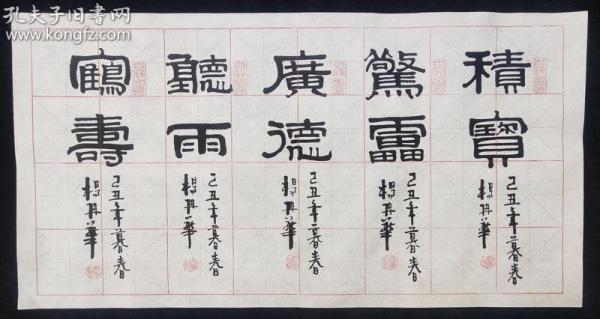 孔夫子旧书网
www.kongfz.com
積寶
己丑年暮春
楊丹華
驚雷
己丑年暮春
楊丹華
廣德
己丑年暮春
楊丹華
聽雨
己丑年暮春
楊丹華
鶴壽
己丑年暮春
楊丹華